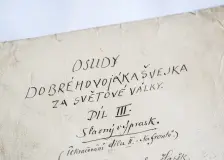 OSUDY
DOBRÉHO VOJÁKA ŠVEJKA
ZA SVĚTOVÉ VÁLKY.
DÍL III.
Slavný výprask.
(Pokračování dílu II. Na frontě.)